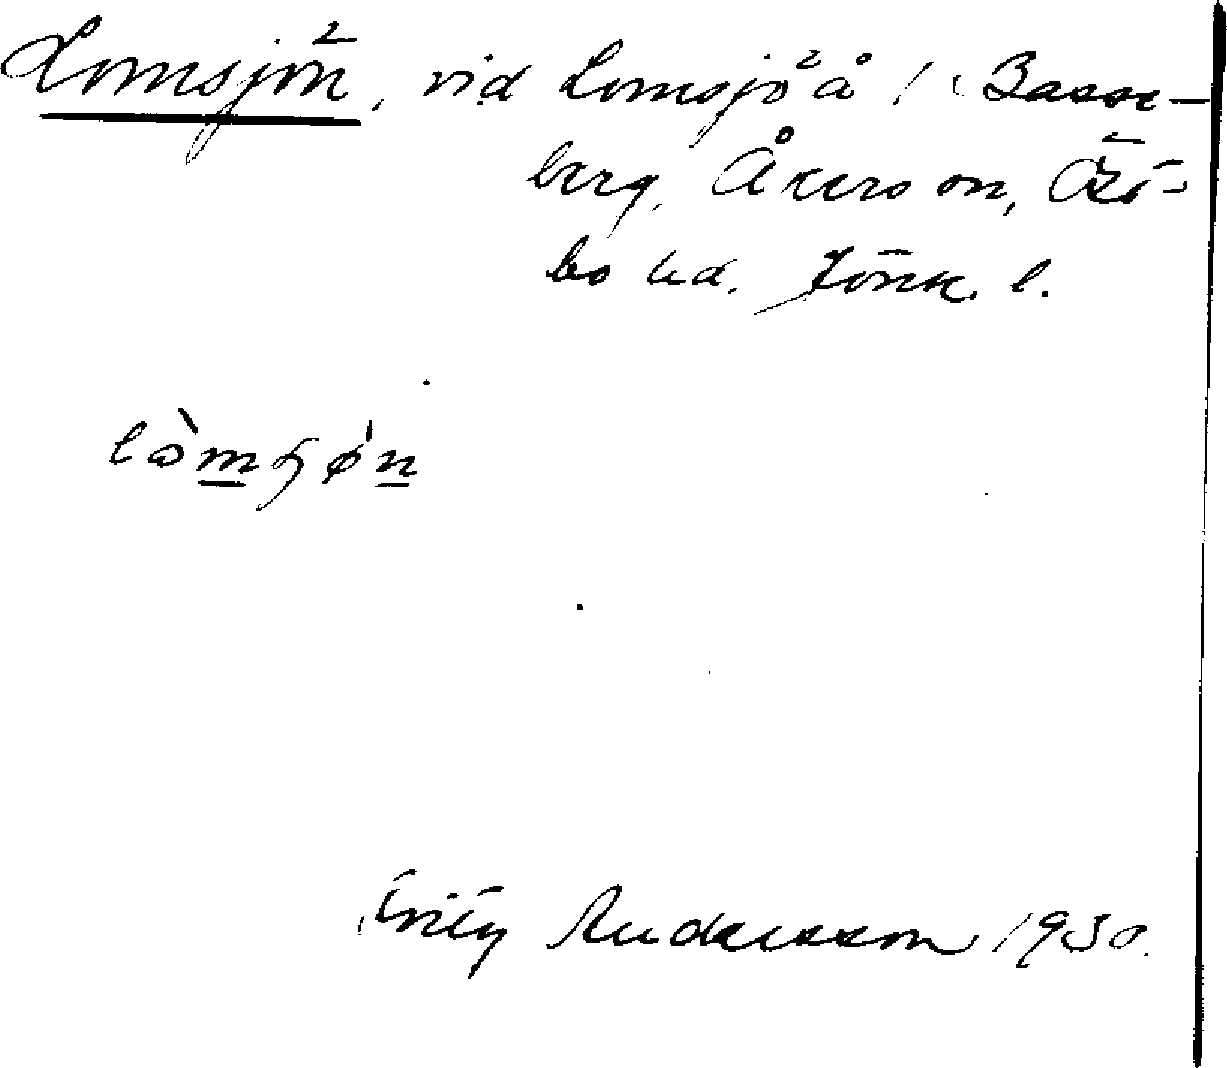 Lomsjön, vid Lomsjöå i Basse-
berg, Åkers sn, Östbo hd. Jönk. l.
lòmʃǿn
Andersson 1930.